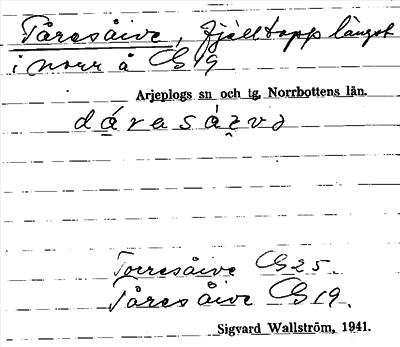 Tåresåive, fjälltopp längst
i norr å CG 19
Arjeplogs sn och tg, Norrbottens län.
dárasáɪ̯və
Torresåive CG 25.
Tåres Åive CG 19.
Sigvard Wallström, 1941.